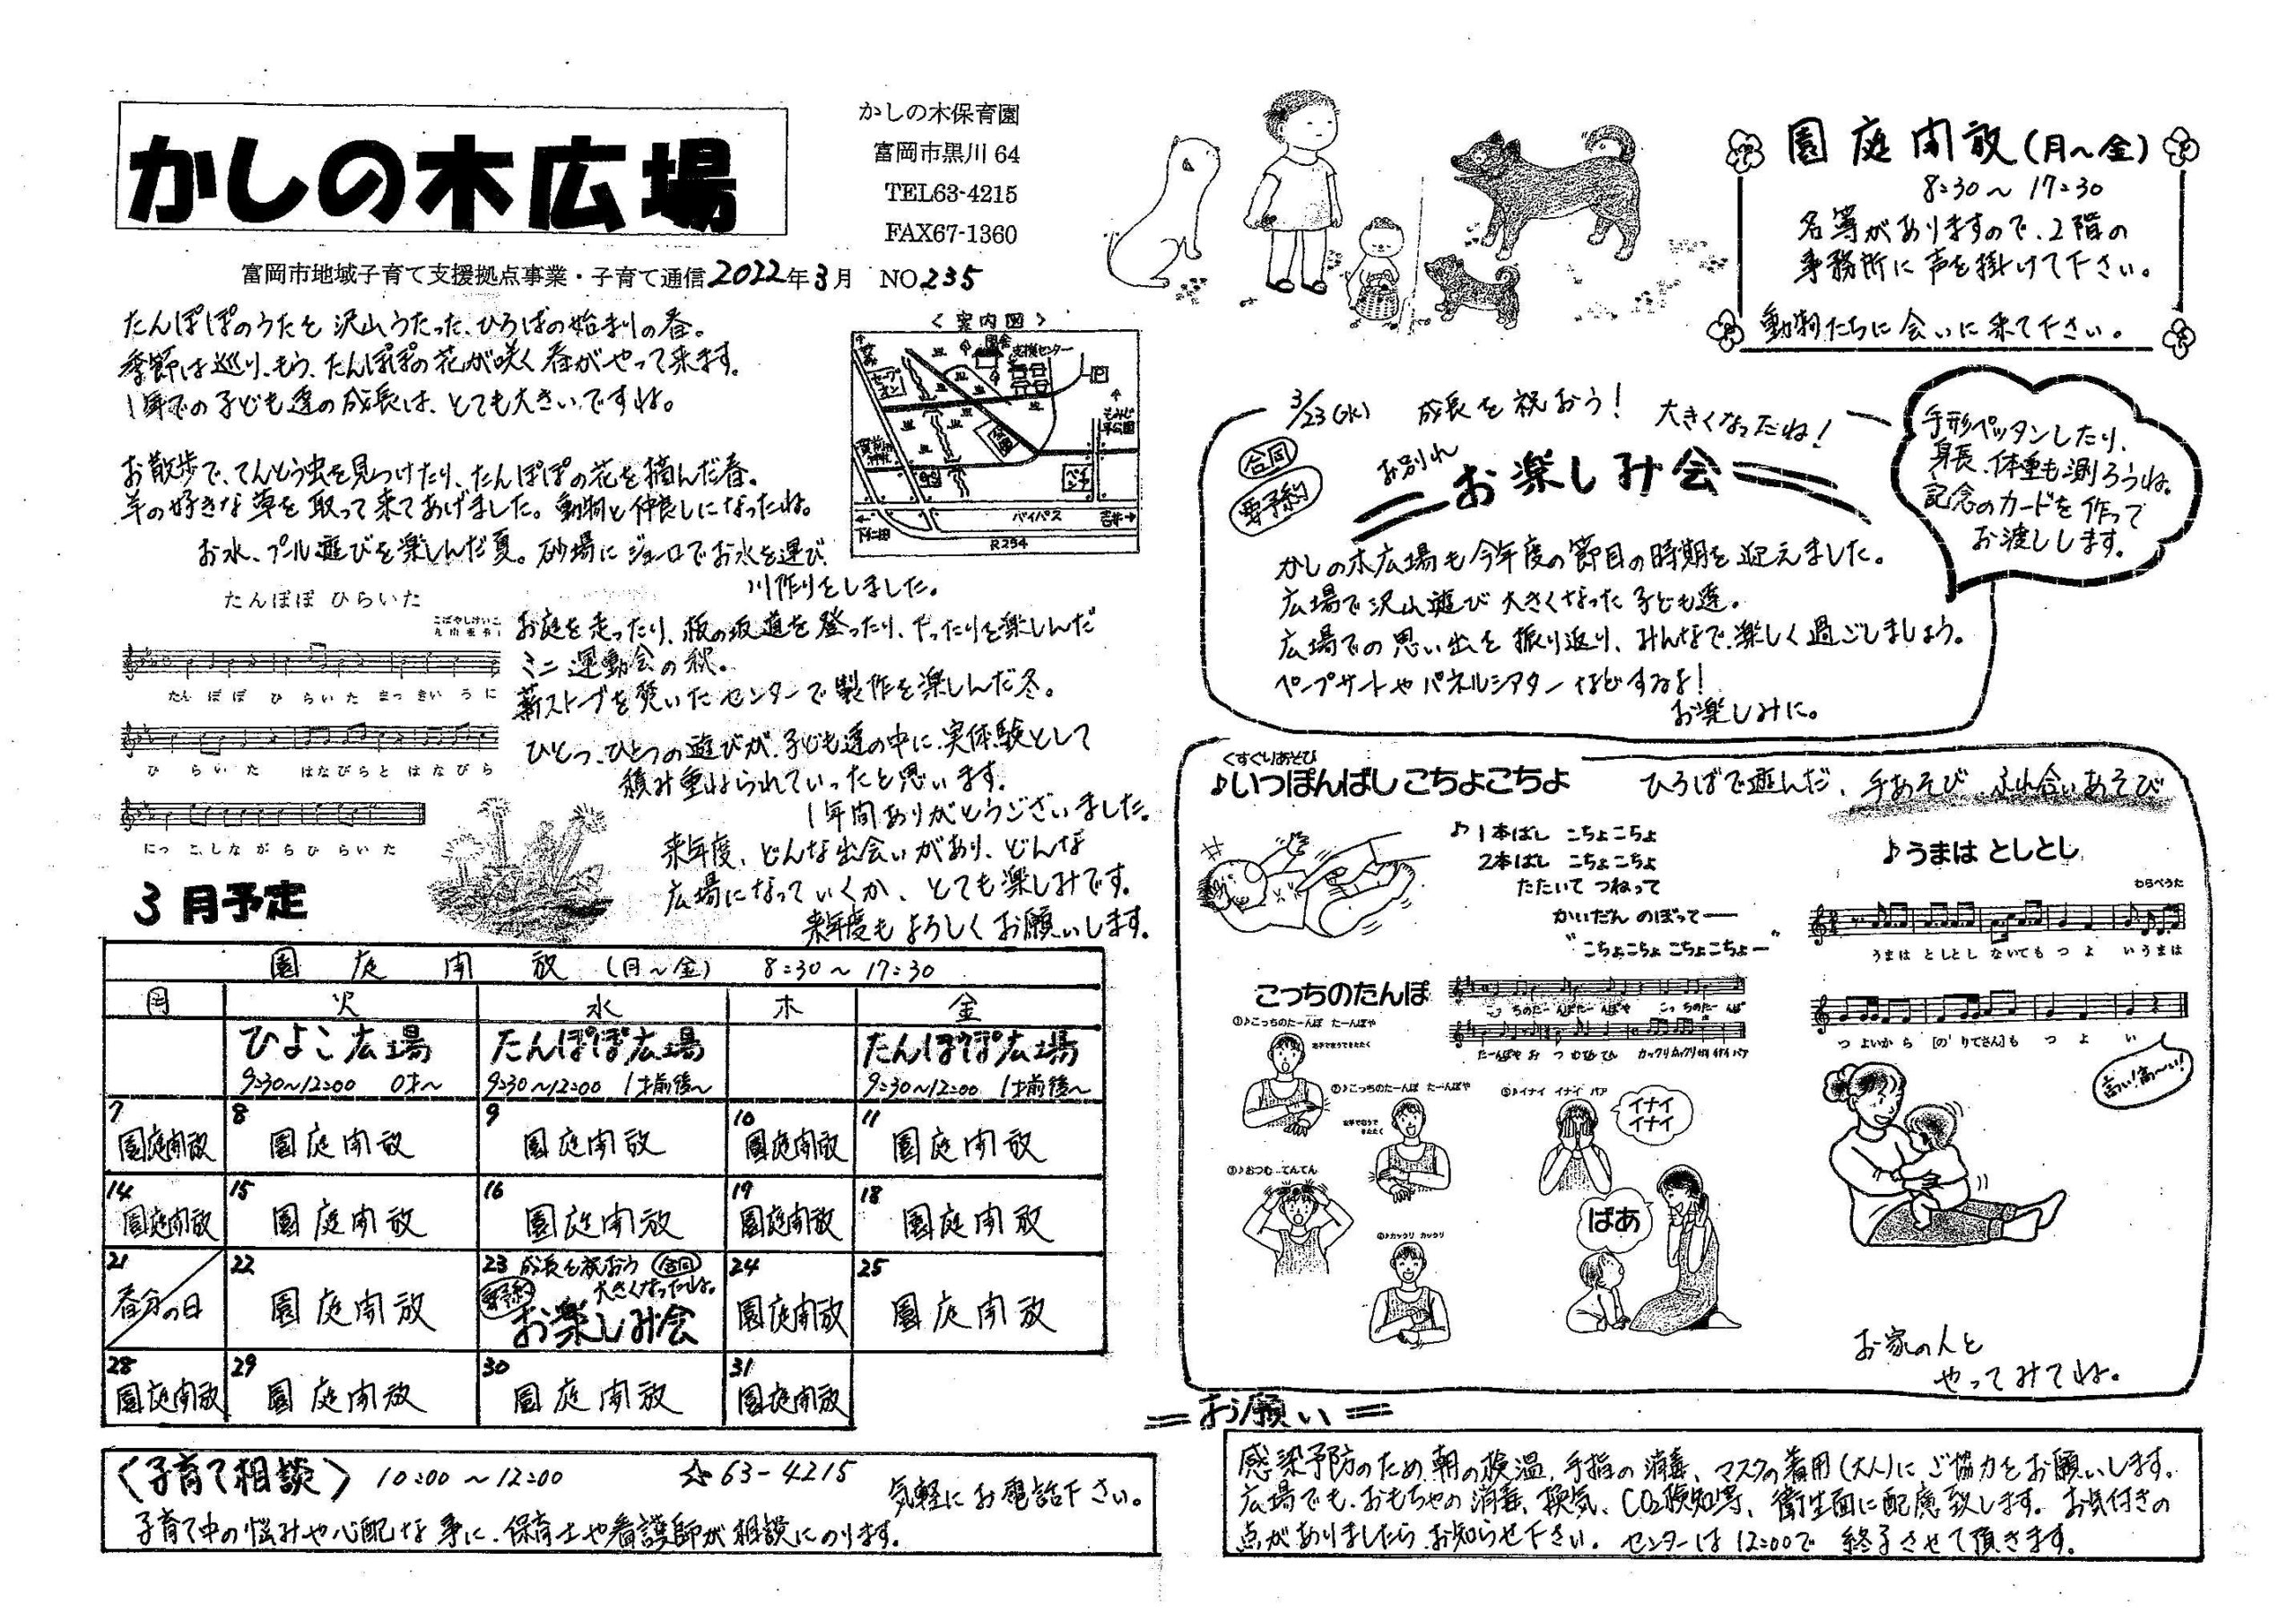 かしの木広場
かしの木保育園
富岡市黒川 64
TEL63-4215
FAX67-1360
富岡市地域子育て支援拠点事業・子育て通信 2022年3月 NO235
たんぽぽのうたを沢山うたった、ひろばの始まりの春。
季節は巡り、もう、たんぽぽの花が咲く春がやって来ます。
1年での子ども達の成長は、とても大きいですね。
お散歩で、てんとう虫を見つけたり、たんぽぽの花を摘んだ春。
羊の好きな草を取って来てあげました。動物と仲良しになったね。
お水、プール遊びを楽しんだ夏。砂場にジョーロでお水を運び、
川作りをしました。
お庭を走ったり、板の坂道を登ったり、下ったりを楽しんだ
ミニ運動会の秋。
薪ストーブを焚いたセンターで製作を楽しんだ冬。
ひとつ、ひとつの遊びが、子ども達の中に、実体験として
積み重ねられていったと思います。
1年間ありがとうございました。
来年度、どんな出会いがあり、どんな
広場になっていくか、とても楽しみです。
来年度もよろしくお願いします。
<案内図>
支援センター
バイパス
吉井→
下仁田
R254
たんぽぽ ひらいた
たんぽぽ ひらいた まっきいろに
ひらいた はなびらと はなびら
にっこしながらひらいた
3月予定
園庭開放 (月〜金) 8:30〜17:30
月 火 水 木 金
ひよこ広場 たんぽぽ広場 たんぽぽ広場
9:30〜12:00 0才〜 9:30〜12:00 1才前後〜 9:30〜12:00 1才前後〜
7 8 9 10 11
園庭開放 園庭開放 園庭開放 園庭開放 園庭開放
14 15 16 19 18
園庭開放 園庭開放 園庭開放 園庭開放 園庭開放
21 22 23 成長を祝おう 合同 24 25
要予約 大きくなったね。
春分の日 園庭開放 お楽しみ会 園庭開放 園庭開放
28 29 30 31
園庭開放 園庭開放 園庭開放 園庭開放
〈子育て相談〉 10:00〜12:00 ☆63-4215 気軽にお電話下さい。
子育て中の悩みや心配な事に、保育士や看護師が相談にのります。
園庭開放(月〜金)
8:30〜17:30
名簿がありますので、2階の
事務所に声を掛けて下さい。
動物たちに会いに来て下さい。
3/23(水) 成長を祝おう! 大きくなったね!
合同
要予約
お別れ
お楽しみ会
手形ペッタンしたり、
身長、体重も測ろうね。
記念のカードを作って
お渡しします。
かしの木広場も今年度の節目の時期を迎えました。
広場で沢山遊び大きくなった子ども達。
広場での思い出を振り返り、みんなで楽しく過ごしましょう。
ペープサートやパネルシアターなどするよ!
お楽しみに。
くすぐりあそび
♪いっぽんばしこちょこちょ
ひろばで遊んだ、手あそび ふれ合いあそび
♪1本ばし こちょこちょ
2本ばし こちょこちょ
たたいて つねって
かいだん のぼってー
"こちょこちょ こちょこちょー"
♪うまは としとし
わらべうた
うまは としとし ないても つ よ い うまは
つ よいから [の' りてさん]も つ よ い
高い!高〜い!
こっちのたんぽ
①♪こっちのたーんぽ たーんぽや
②♪こっちのたーんぽ たーんぽや
③♪おつむ てんてん
④♪カックリ カックリ
⑤♪イナイ イナイ バア
イナイ
イナイ
ばあ
お家の人と
やってみてね。
=お願い=
感染予防のため、朝の検温、手指の消毒、マスクの着用(大人)にご協力をお願いします。
広場でも、おもちゃの消毒、換気、CO2検知等、衛生面に配慮致します。お気付きの
点がありましたらお知らせ下さい。センターは12:00で終了させて頂きます。